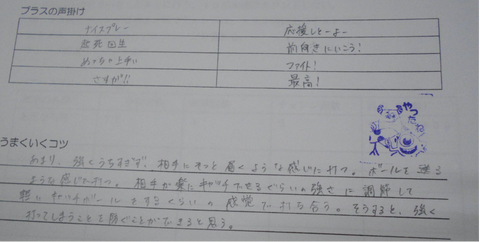 プラスの声掛け
ナイスプレー 応援しとーよー
起死回生 前向きにいこう!
めっちゃ上手い ファイト!
さすが!! 最高!
うまくいくコツ
あまり、強くうちすぎず、相手にそっと届くような感じに打つ。ボールを送る
ような感じで打つ。相手が楽にキャッチできるぐらいの強さに調節して
軽くキャッチボールをするくらいの感覚で打ち合う。そうすると、強く
打ってしまうことを防ぐことができると思う。